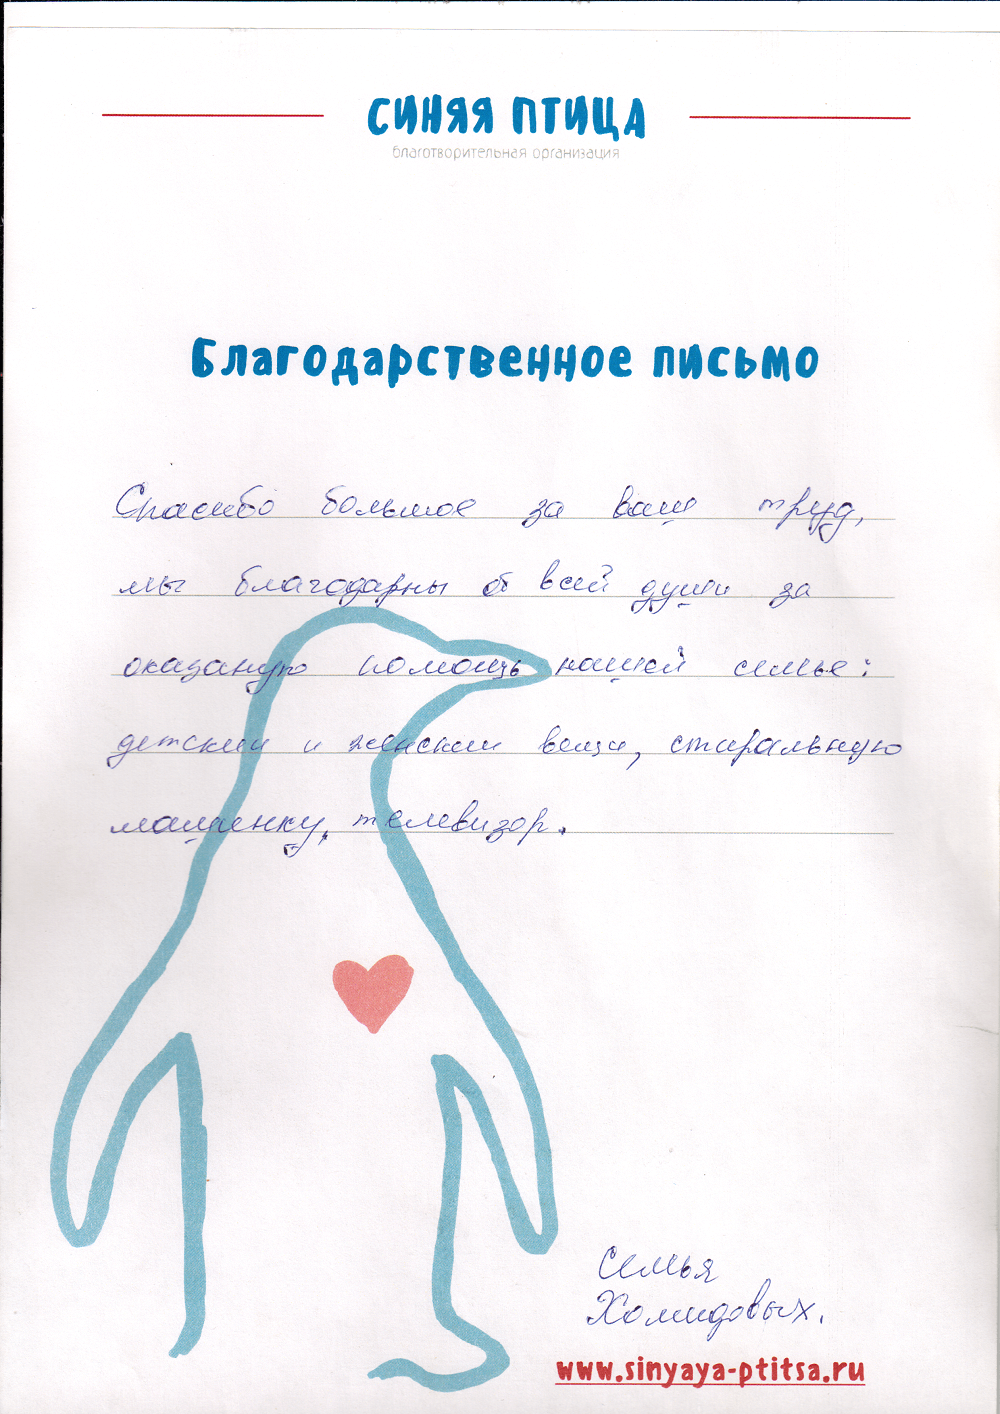 СИНЯЯ ПТИЦА
благотворительная организация
Благодарственное письмо
Спасибо большое за ваш труд,
мы благодарны от всей души за
оказаную помощь нашей семье:
детскии и женскии вещи, стиральную
машинку, телевизор.
Семья
Хомидовых.
www.sinyaya-ptitsa.ru